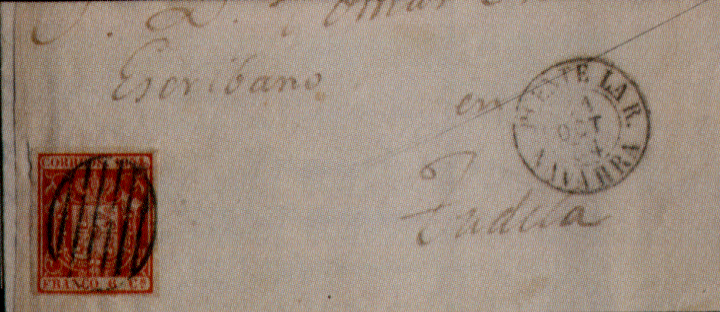 S. D. Tomas
Escribano
en
Tudela
PUENTE LA R.
1
OCT
54
NAVARRA
CORREOS 1854
FRANCO 6 Cs